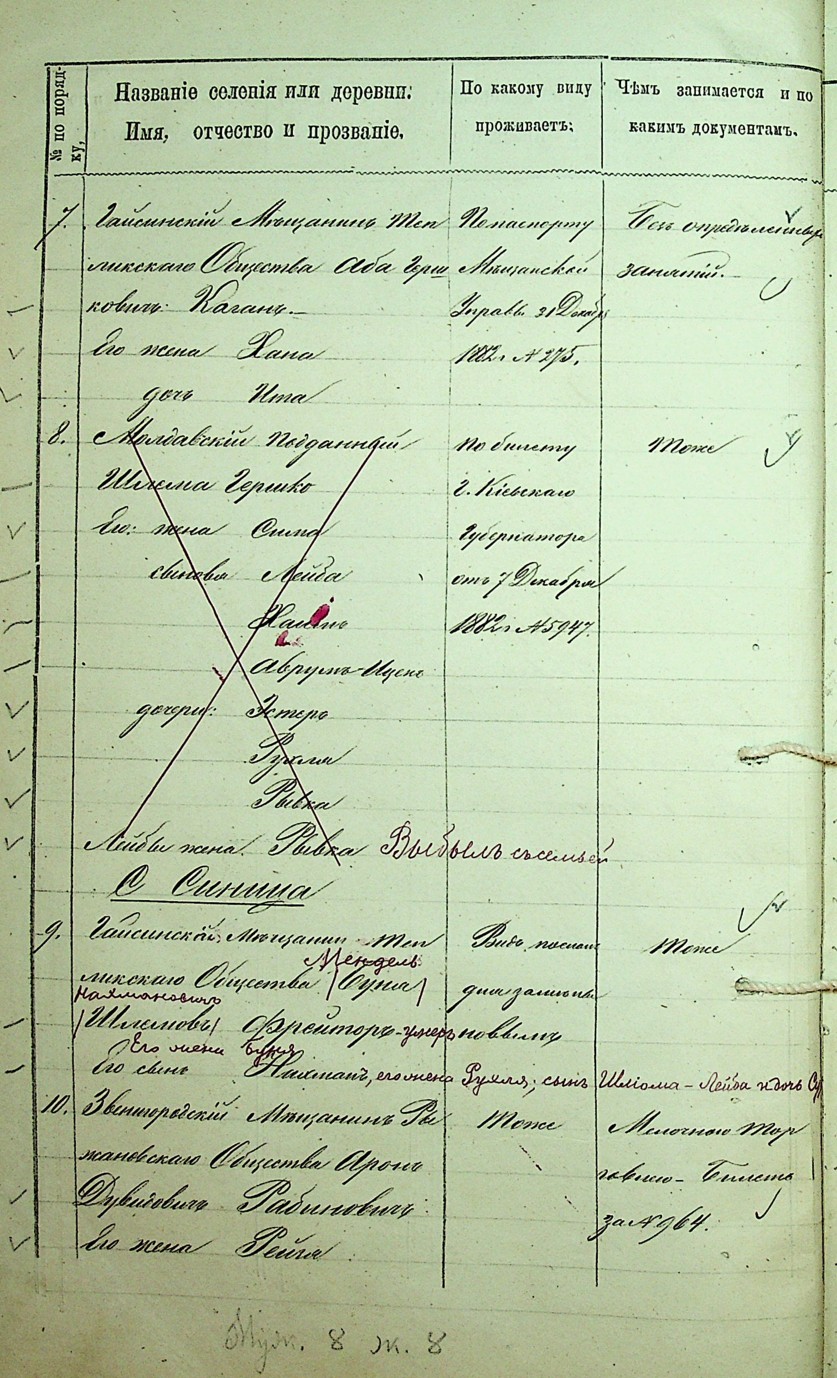 № по поряд-
ку,
Названіе селенія или деревни.
Имя, отчество и прозваніе,
По какому виду
проживаетъ:
Чѣмъ занимается и по
какимъ документамъ.
7. Гайсинскій Мѣщанинъ Теп
ликскаго Общества Аба Герш
ковичъ Каганъ.
Его жена Хана
дочь Ита
По паспорту
Мѣщанской
Управы 31 Декабр
1882 г № 275.
Безъ
занятій.
8. Молдавскій Подданный
Шлема Гершко
Его: жена Сима
сыновья Лейба
Хаимъ
Аврумъ-Ицекъ
дочери: Эстеръ
Рухля
Рывка
Лейбы жена Рывка Выбылъ съ семьей
по билету
г. Кіевскаго
Губернатора
отъ 7 Декабря
1882 г № 5947.
Тоже
С Синица
9. Гайсинскій Мѣщанинъ Теп
Мендель
ликскаго Общества /Суня/
Нахмановичъ
/Шлемовъ/ Фрейторъ-умеръ
Его жена Буня
Его сынъ Нахманъ, его жена Рухля, сынъ Шліома-Лейба и дочь
Видъ посланъ
для
новымъ
Тоже
10. Звенигородскій Мѣщанинъ Ры
жановскаго Общества Аронъ
Дувидовичъ Рабиновичъ
Его жена Рейзя
Тоже
Мелочною тор
говлею - Билетъ
за № 964.
Муж. 8 ж. 8